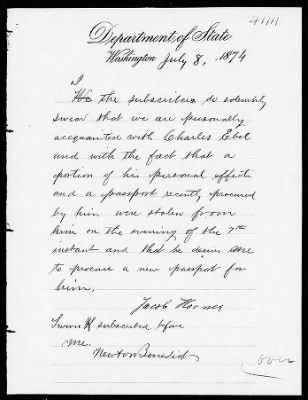 41111
Department of State
Washington July 8, 1874
I
We the subscriber do solemnly
swear that we are personally
acquainted with Charles Ebel
and with the fact that a
portion of his personal effects
and a passport recently procured
by him were stolen from
him on the evening of the 7th
instant and that he desires
to procure a new passport for
him.
Jacob
Sworn & subscribed before
me.
Newton Benedict
over